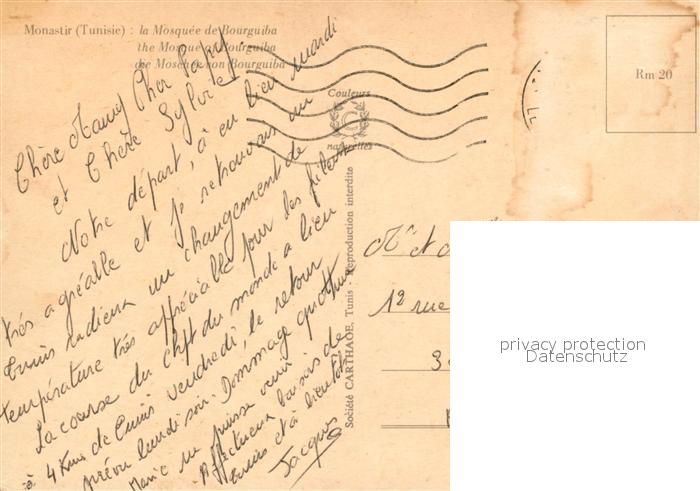 Monastir (Tunisie) : la Mosquée de Bourguiba
the Mosque of Bourguiba
die Moschee von Bourguiba
Couleurs
naturelles
Rm 20
Société CARTHAGE, Tunis - Reproduction interdite
Chère Mamy Cher Papy
et Chère Sylvie
Notre départ, a eu lieu mardi
très agréable et je retrouvais un
Tunis radieux un changement de
température très appréciable pour les
La course du Cht du monde a lieu
à 4 Kms de Tunis vendredi, le retour
prévu lundi soir. Dommage que
ne puisse venir
Affectueux baisers de
Tunis et à bientôt
Jacques
Mr et
12 rue
3
privacy protection
Datenschutz